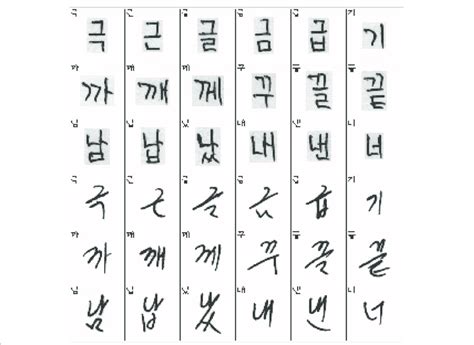 극 근 글 금 급 기
까 깨 께 꾸 끌 끝
남 납 났 내 낸 너
극 근 글 금 급 기
까 깨 께 꾸 끌 끝
남 납 났 내 낸 너